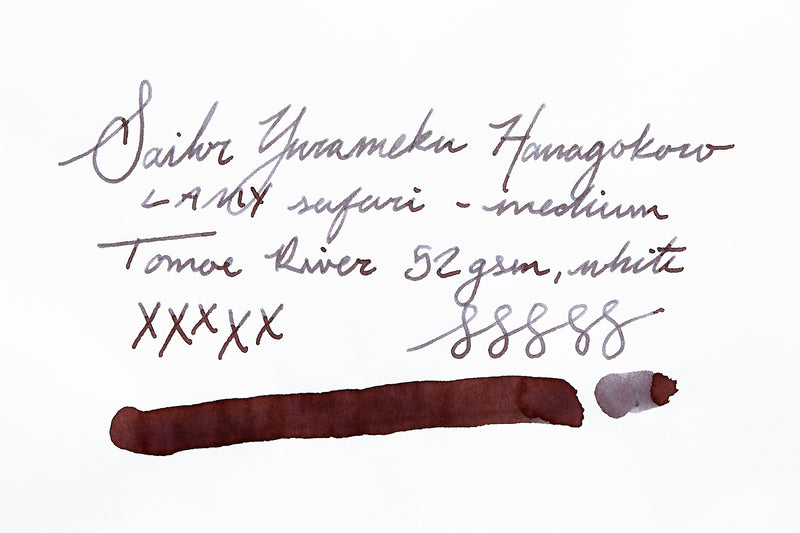 Sailor Yurameku Hanagokoro
LAMY safari - medium
Tomoe River 52gsm, white
XXXXX SSSSS